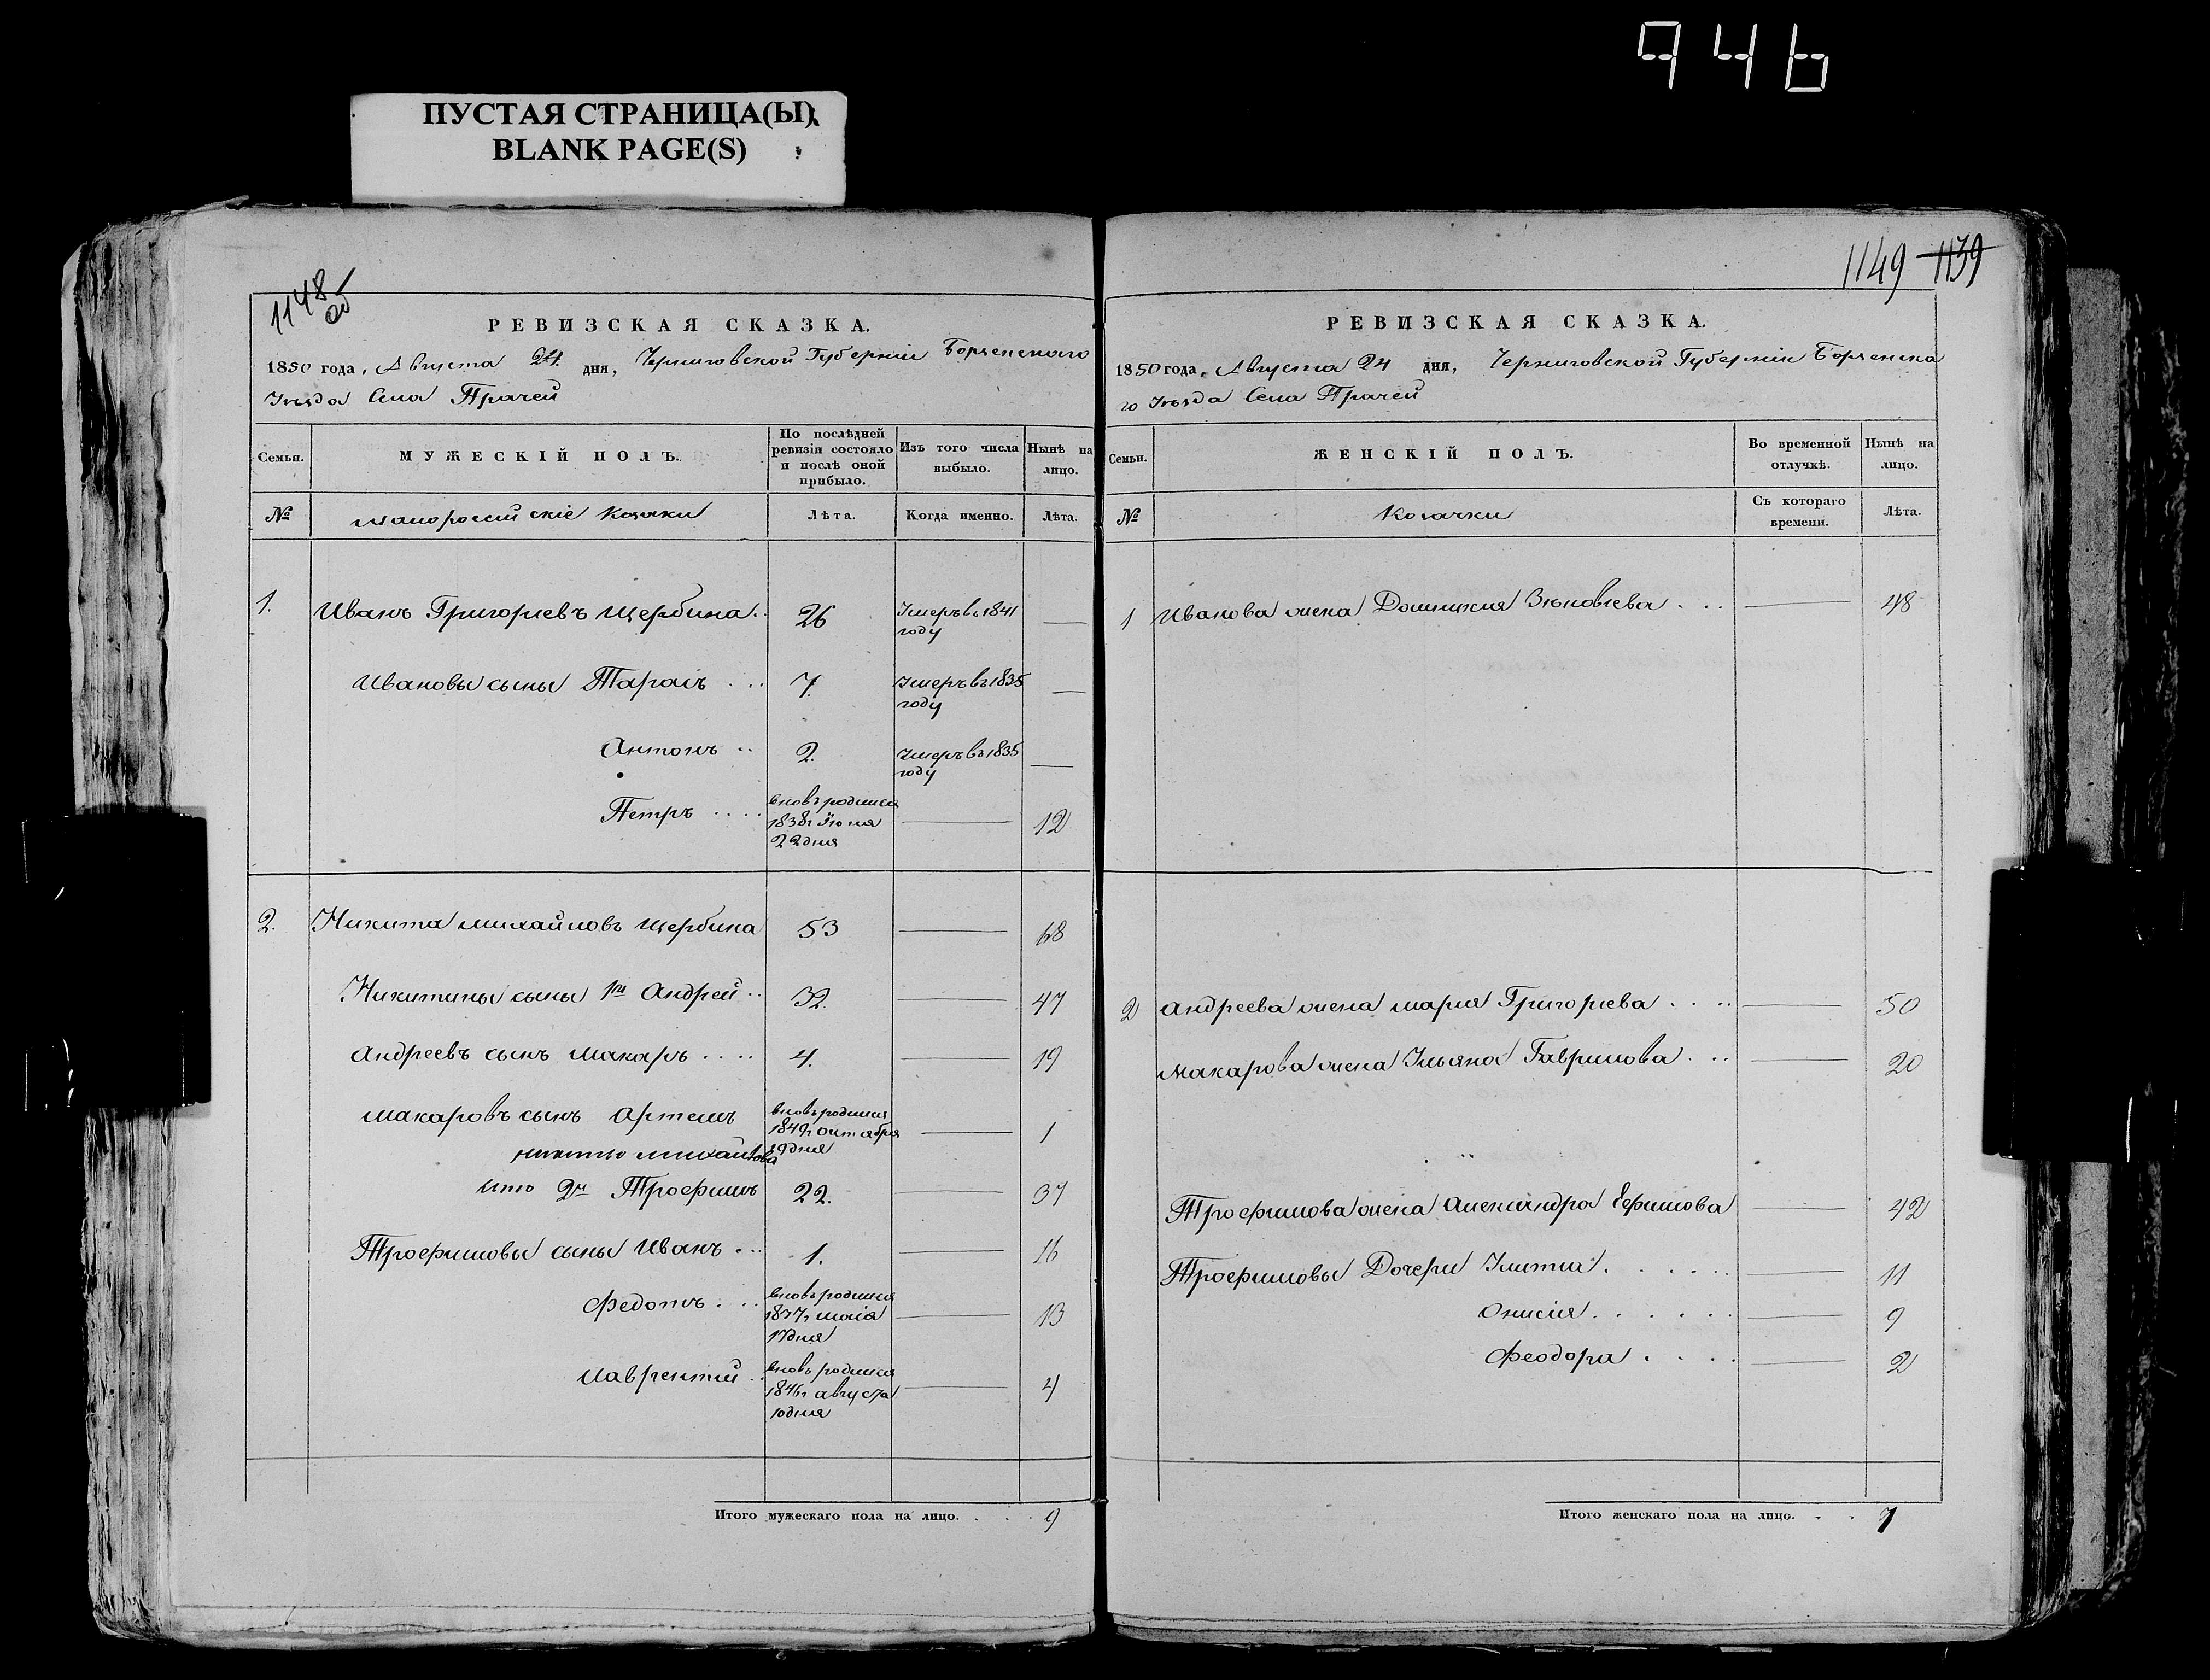 946
ПУСТАЯ СТРАНИЦА(Ы)
BLANK PAGE(S)
1148
об
РЕВИЗСКАЯ СКАЗКА.
1850 года, Августа 24 дня, Черниговской Губернiи Борзенскаго
Уѣзда Села Прачей
Семьи.
МУЖЕСКІЙ ПОЛЪ.
По послѣдней ревизіи состояло и послѣ оной прибыло.
Изъ того числа выбыло.
Нынѣ на лицо.
№
Малороссійскіе Козаки
Лѣта.
Когда именно.
Лѣта.
1. Иванъ Григорьевъ Щербина.. 26 Умеръ въ 1841 году —
Ивановы сыны Тарасъ ... 7. Умеръ въ 1835 году —
Антонъ .. 2. Умеръ въ 1835 году —
Петръ .... вновь родился 1838г Iюня 22 дня — 12
2. Никита Михайловъ Щербина 53 — 68
Никитины сыны 1й Андрей .. 32. — 47
Андреевъ сынъ Макаръ .... 4. — 19
Макаровъ сынъ Артемъ вновь родился 1849г октября 29 дня — 1
Никиты Михайлова
2й Трофимъ 22. — 37
Трофимовы сыны Иванъ ... 1. — 16
Федотъ ... вновь родился 1837г маія 17 дня — 13
Лаврентій .. вновь родился 1846г августа 10 дня — 4
Итого мужескаго пола на лицо. . . . 9
1149 1139
РЕВИЗСКАЯ СКАЗКА.
1850 года, Августа 24 дня, Черниговской Губерніи Борзенска
го Уѣзда Села Прачей
Семьи.
ЖЕНСКІЙ ПОЛЪ.
Во временной отлучкѣ.
Нынѣ на лицо.
№
Козачки
Съ котораго времени.
Лѣта.
1 Иванова жена Домникия Зѣновіева . . . — 48
2 Андреева жена Марія Григоріева . . .. — 50
Макарова жена Ульяна Гаврилова . .. — 20
Трофимова жена Александра Ефимова — 42
Трофимовы Дочери Улита . . . . . . — 11
Онисія . . . . . . — 9
Феодора . . . . — 2
Итого женскаго пола на лицо. . . 7